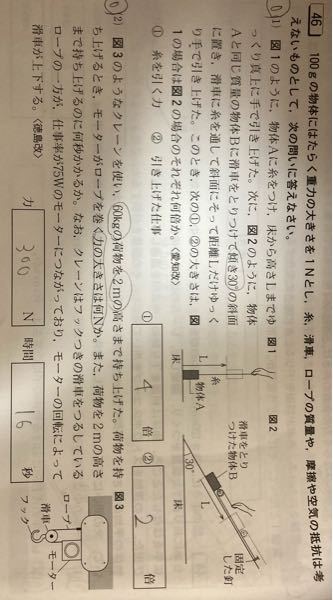 46 100gの物体にはたらく重力の大きさを1Nとし，糸，滑車，ロープの質量や，摩擦や空気の抵抗は考
えないものとして，次の問いに答えなさい。
(1) 図1のように，物体Aに糸をつけ，床から高さLまでゆ
っくり真上に手で引き上げた。次に，図2のように，物体
Aと同じ質量の物体Bに滑車をとりつけて傾き30°の斜面
に置き，滑車に糸を通して斜面にそって距離Lだけゆっく
り手で引き上げた。このとき，次の①，②の大きさは，図
1の場合は図2の場合のそれぞれ何倍か。〈愛知改〉
① 糸を引く力 ② 引き上げた仕事
① 4 倍 ② 2 倍
図1
糸
L
物体A
床
図2
滑車をとり
つけた物体B
L
固定
した釘
30°
床
(2) 図3のようなクレーンを使い，60kgの荷物を2mの高さまで持ち上げた。荷物を持
ち上げるとき，モーターがロープを巻く力の大きさは何Nか。また，荷物を2mの高さ
まで持ち上げるのに何秒かかるか。なお，クレーンはフックつきの滑車をつるしている
ロープの一方が，仕事率が75Wのモーターにつながっており，モーターの回転によって
滑車が上下する。〈徳島改〉
力 300 N 時間 16 秒
図3
ロープ
滑車
フック
モーター